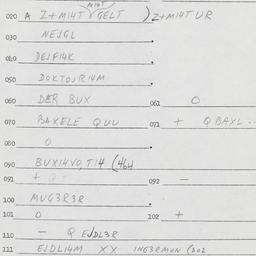 MI4T
020 A I+MI4T GELT ) Z+MI4T UR
030 NEJGL
040 DEJFI4K
050 DOKTOJRI4M
060 DER BUX 061 O
070 BAXELE QUU 071 + QBAXL
080 O
090 BUXI4VO,TI4 (464
091 + 092 —
100 MUG3R3R
101 O 102 +
110 — Q EJDL3R
111 EJDLI4M XX ING3RMON (302